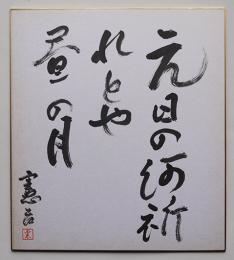 元日の何祈
れとや
昼の月
憲吉